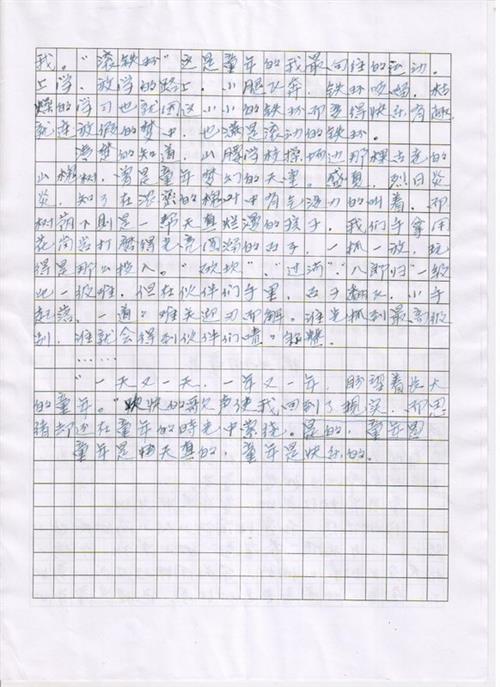 我。"滚铁环"这是童年的我最向往的运动。
上学、放学的路上，小腿飞奔，铁环叮当，枯
燥的学习也就因这小小的铁环而变得快乐有趣
就连放假的梦中，也满是滚动的铁环。
满梦的知道，山腰学校操场边那棵古老的
山楸树，曾是童年梦幻的天堂。盛夏，烈日炎
炎，知了在浓密的树叶中有气没力的叫着，而
树荫下则是一帮天真烂漫的孩子，我们手拿用
瓦岗岩打磨得光亮圆滑的石子，一抓一放，玩
得是那么投入。"砍坎"、"过河"、"八郎归"一级
比一级难，但在伙伴们手里，石子翻飞，小手
起落，一道道难关迎刃而解。谁先抓到最高级
别，谁就会得到伙伴们啧啧的
……
"一天又一天，一年又一年，盼望着长大
的童年。"欢快的歌声使我回到了现实，而思
绪却仍在童年的时光中萦绕。是的，童年是
童年是天真的，童年是快乐的。